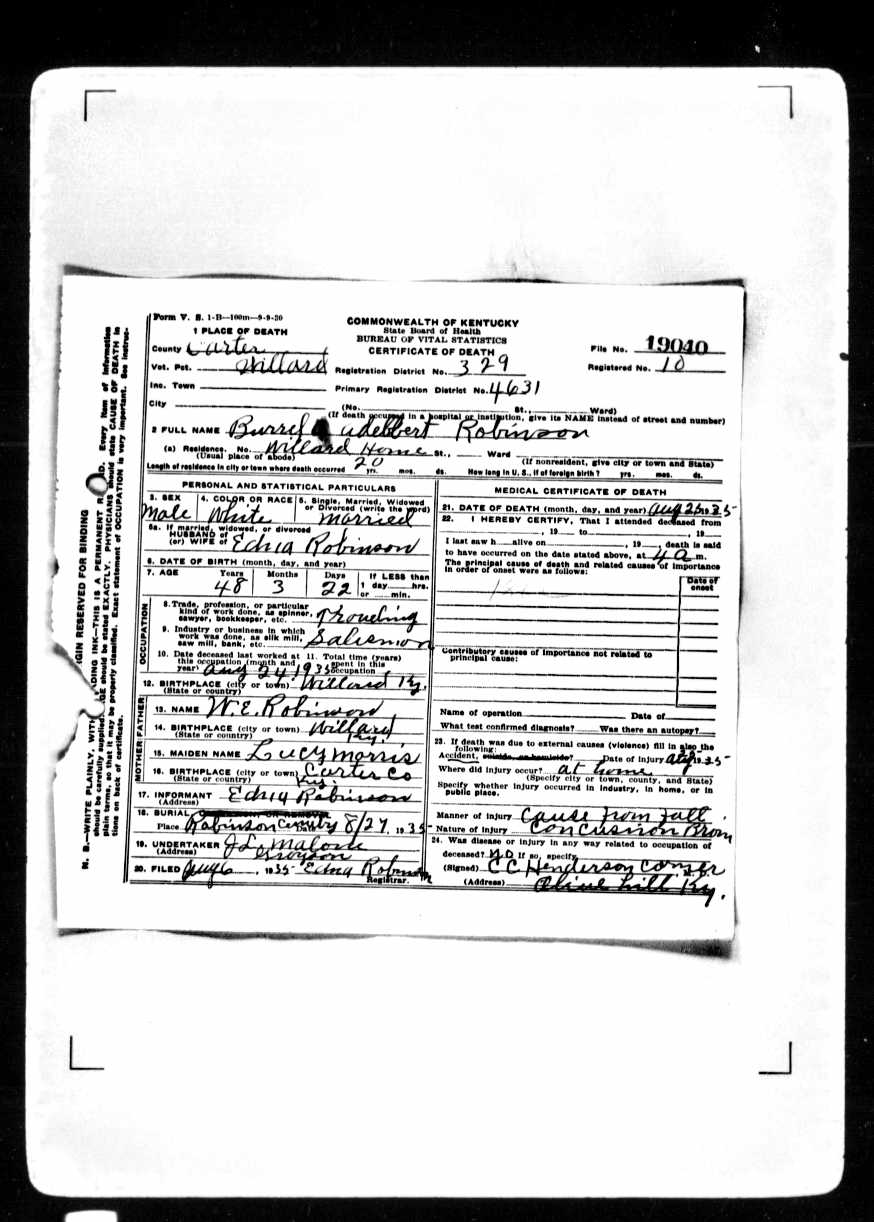 Form V. S. 1-B—100m—9-9-30
COMMONWEALTH OF KENTUCKY
State Board of Health
BUREAU OF VITAL STATISTICS
CERTIFICATE OF DEATH
1 PLACE OF DEATH
County Carter
File No. 19040
Vot. Pct. Willard Registration District No. 329 Registered No. 10
Inc. Town Primary Registration District No. 4631
City (No. St., Ward)
(If death occurred in a hospital or institution, give its NAME instead of street and number)
2 FULL NAME Burrel Adelbert Robinson
(a) Residence. No. Willard Home St., Ward
(Usual place of abode) (If nonresident, give city or town and State)
Length of residence in city or town where death occurred 20 yrs. mos. ds. How long in U. S., if of foreign birth? yrs. mos. ds.
PERSONAL AND STATISTICAL PARTICULARS
3. SEX 4. COLOR OR RACE 5. Single, Married, Widowed or Divorced (write the word)
Male White Married
5a. If married, widowed, or divorced
HUSBAND of
(or) WIFE of Edna Robinson
6. DATE OF BIRTH (month, day, and year)
7. AGE Years Months Days If LESS than 1 day hrs. or min.
48 3 22
OCCUPATION
8. Trade, profession, or particular kind of work done, as spinner, sawyer, bookkeeper, etc.
9. Industry or business in which work was done, as silk mill, saw mill, bank, etc. Salesmon
10. Date deceased last worked at this occupation (month and year) Aug 24, 1935
11. Total time (years) spent in this occupation
12. BIRTHPLACE (city or town) Willard Ky.
(State or country)
FATHER
13. NAME W. E. Robinson
14. BIRTHPLACE (city or town) Willard
(State or country) Ky.
MOTHER
15. MAIDEN NAME Lucy Morris
16. BIRTHPLACE (city or town) Carter Co
(State or country) Ky.
17. INFORMANT Edna Robinson
(Address)
18. BURIAL, CREMATION OR REMOVAL
Place Robinson Cemetry Date 8/27, 1935
19. UNDERTAKER J L Malone
(Address) Grayson
20. FILED 1935 Edna Robinson
Registrar.
MEDICAL CERTIFICATE OF DEATH
21. DATE OF DEATH (month, day, and year) Aug 25 1935
22. I HEREBY CERTIFY, That I attended deceased from
, 19 to , 19
I last saw h alive on , 19 , death is said
to have occurred on the date stated above, at 4 a m.
The principal cause of death and related causes of importance
in order of onset were as follows:
Date of onset
Contributory causes of importance not related to
principal cause:
Name of operation Date of
What test confirmed diagnosis? Was there an autopsy?
23. If death was due to external causes (violence) fill in also the
following:
Accident, suicide, or homicide? Date of injury 1935
Where did injury occur? at home
(Specify city or town, county, and State)
Specify whether injury occurred in industry, in home, or in
public place.
Manner of injury Cause from fall
Nature of injury Concusion
24. Was disease or injury in any way related to occupation of
deceased? No If so, specify
(Signed) C C Henderson
(Address) Olive hill Ky.
MARGIN RESERVED FOR BINDING
N. B.—WRITE PLAINLY, WITH UNFADING INK—THIS IS A PERMANENT RECORD. Every item of information
should be carefully supplied. AGE should be stated EXACTLY. PHYSICIANS should state CAUSE OF DEATH in
plain terms, so that it may be properly classified. Exact statement of OCCUPATION is very important. See instruc-
tions on back of certificate.